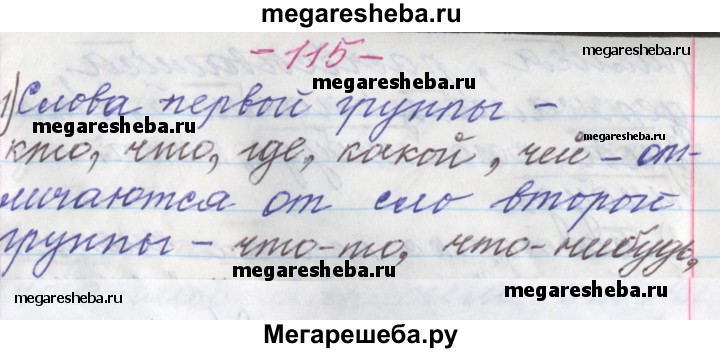 megaresheba.ru
-115-
megaresheba.ru
1) Слова первой группы -
megaresheba.ru
megaresheba.ru
кто, что, где, какой, чей - от-
личаются от сло второй
группы - что-то, что-нибудь,
megaresheba.ru
megaresheba.ru
megaresheba.ru
Мегарешеба.ру